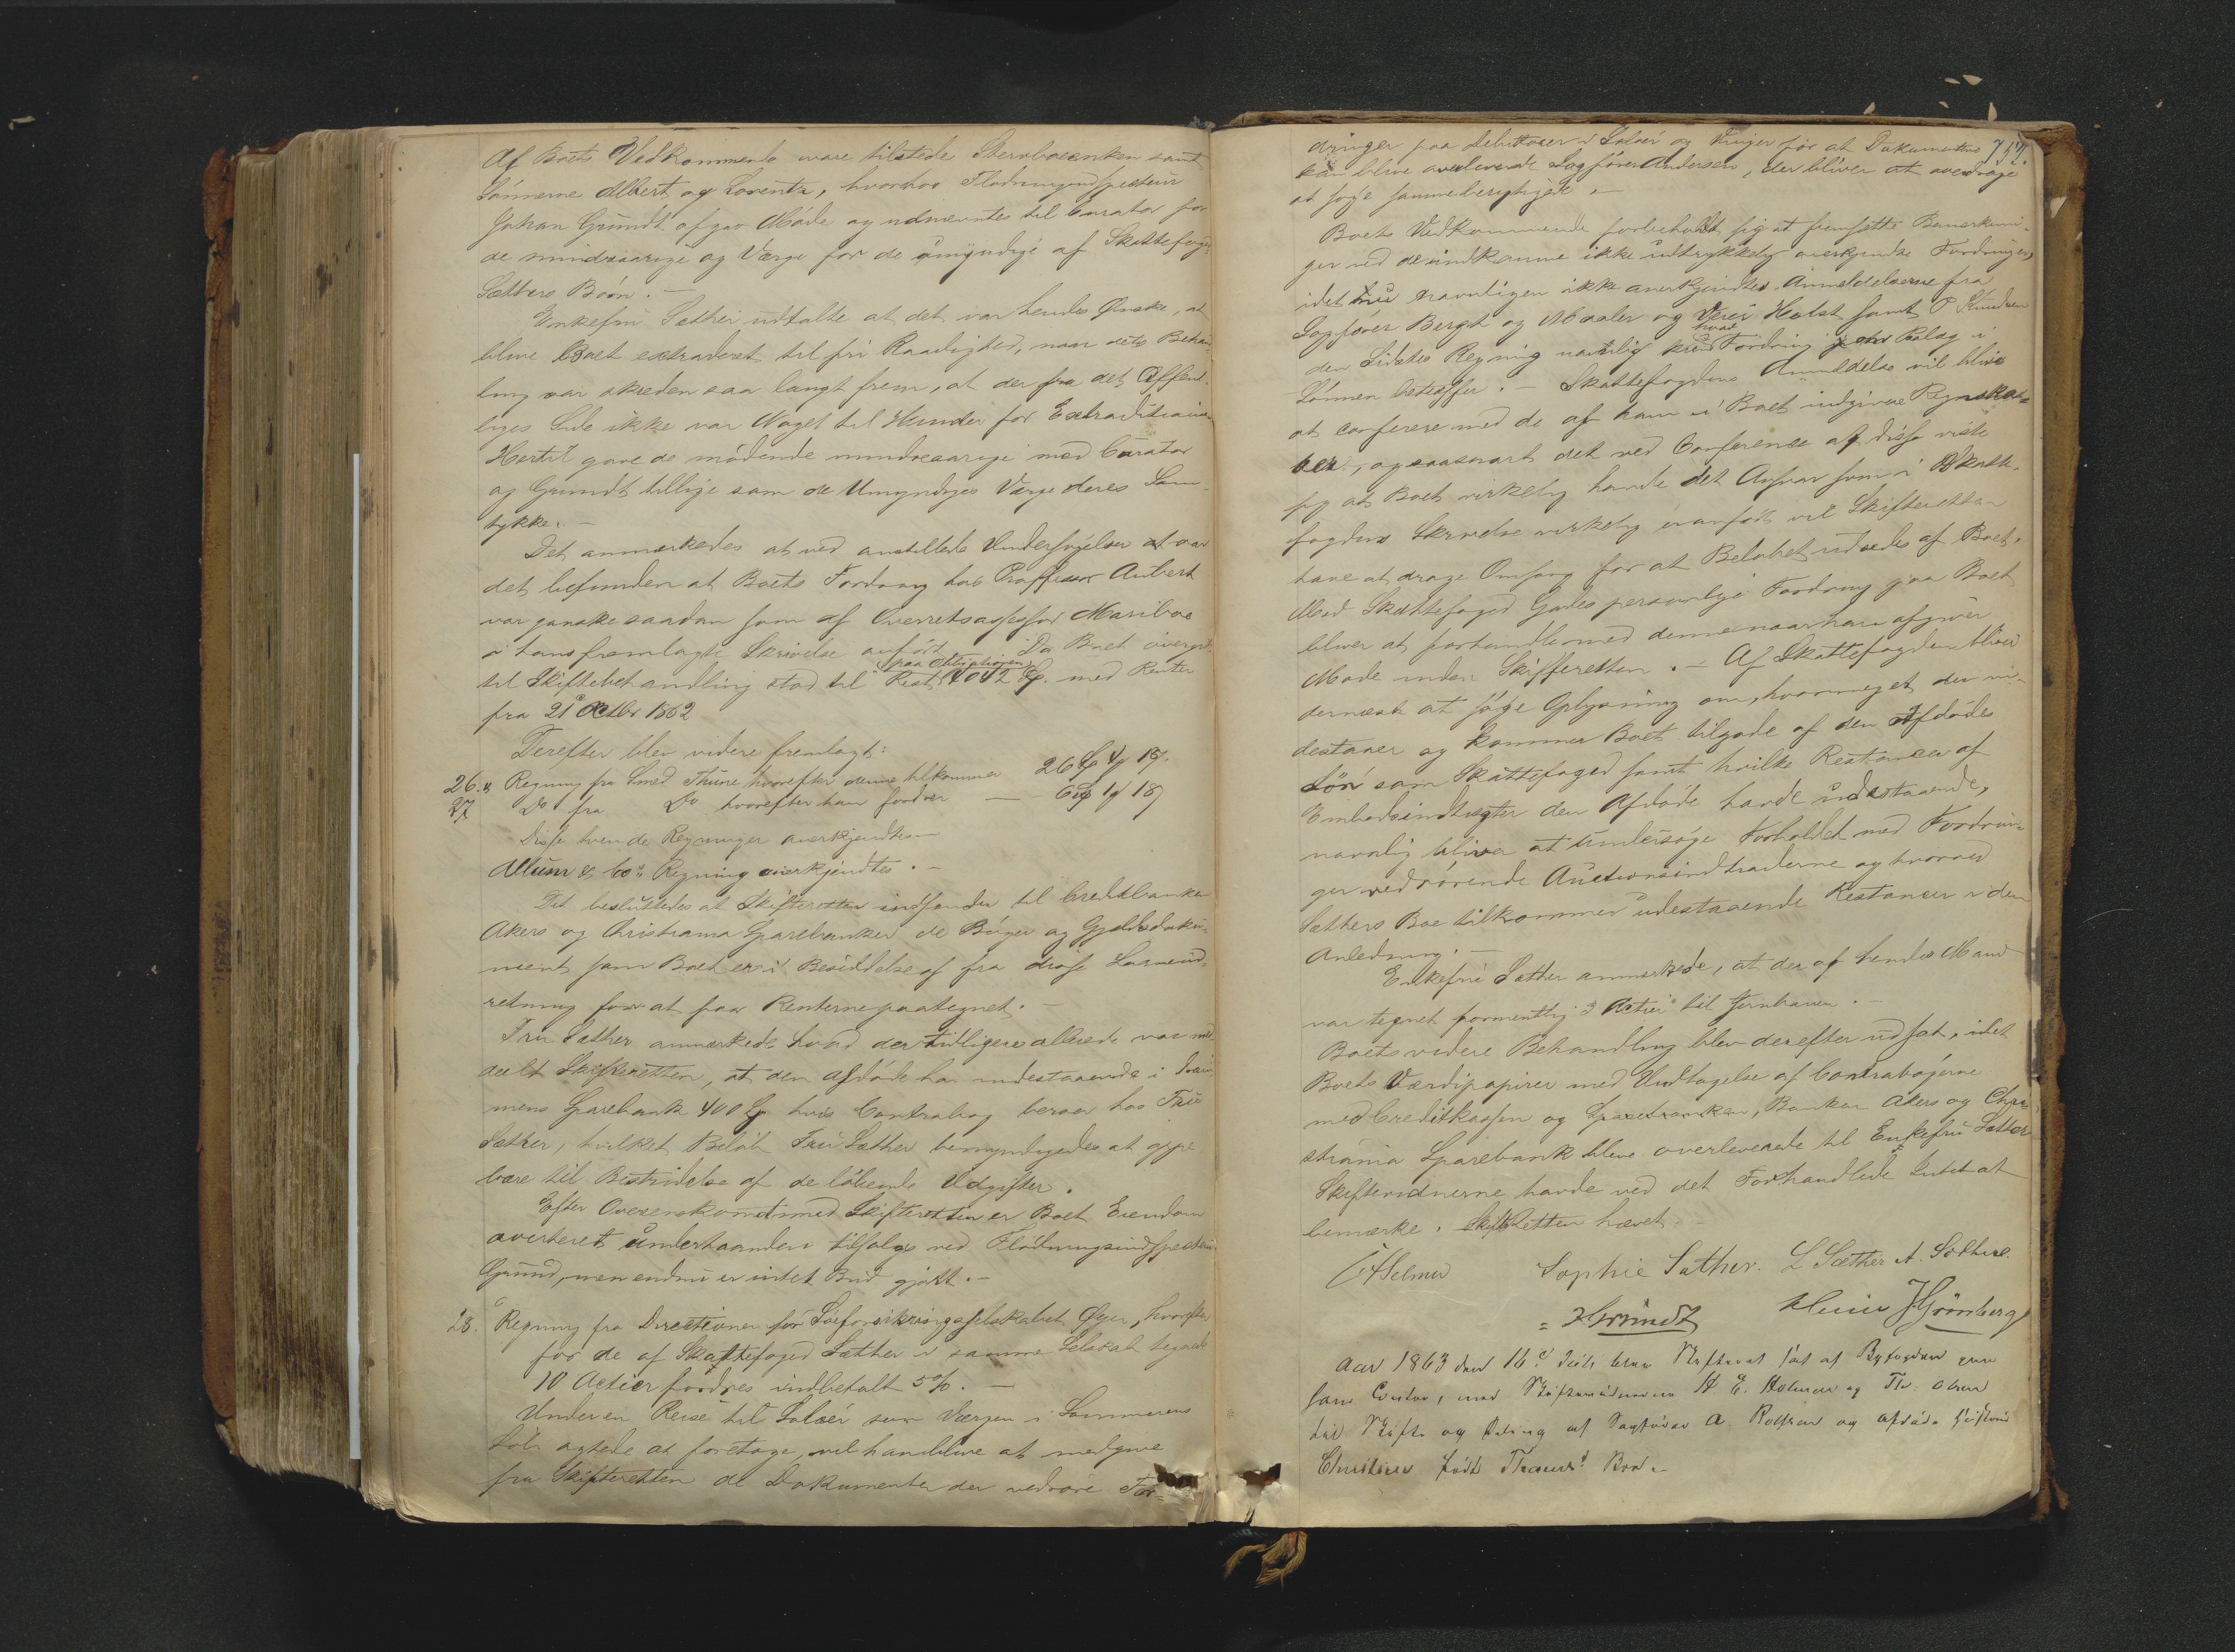 Af Boets Vedkommende vare tilstede Stervboenken samt
Sønnerne Albert og Lorentz, hvorhos Flødningsindspecteur
Johan Grundt afgav Møde og udnævntes til Curator for
de mindreaarige og Værge for de umyndige af Skattefoged
Sæthers Børn. -
Enkefru Sæther udtalte at det var hendes Ønske, at
blive Boet extraderet til fri Raadighed, naar dets Behand-
ling var skreden saa langt frem, at der fra det Offent-
liges Side ikke var Noget til Hinder for Extraditionen
Hertil gave de mødende mindreaarige med Curator
og Grundt tillige som de Umyndiges Værge deres Sam-
tykke. -
Det anmærkedes at ved anstillede Undersøgelser at var
det befunden at Boets Fordring hos Professor Aubert
var ganske saadan som af Overretsassessor Mariboe
i hans fremlagte Skrivelse anført. Da Boet overgik
paa Obligationen
til Skiftebehandling stod til Rest 1012 Sp. med Renter
fra 21 Octbr 1862
Derefter blev videre fremlagt:
26. Regning fra Smed Thune hvorefter denne tilkommer 26 Sp 4 19.
27 Do fra Do hvorefter han fordrer — 6 Sp 1 18
Disse tvende Regninger anerkjendtes -
Allum & Co Regning anerkjendtes. -
Det besluttedes at Skifteretten indsender til Creditbanken
Akers og Christiania Sparebanker de Bøger og Gjeldsdoku-
ment som Boet er i Besiddelse af fra disse Laaneind-
retning for at faa Renterne paategnet. -
Fru Sæther anmærkede hvad der tidligere allerede var med-
deelt Skifteretten, at den afdøde har indestaaende i Dram-
mens Sparebank 400 Sp hvis Contrabog beroer hos Fru
Sæther, hvilket Beløb Fru Sæther bemyndigedes at oppe-
bære til Bestridelse af de løbende Udgifter.
Efter Overenskomst med Skifteretten er Boet Eiendom
averteret underhaanden tilsalgs ved Flødningsindspecteur
Grund, men endnu er intet Bud gjort. -
28. Regning fra Directionen for Søeforsikringsselskabet Øger, hvorefter
for de af Skattefoged Sæther i samme Selskab tegnede
10 Actier fordres indbetalt 5%. -
Under en Reise til Soløer som Værgen i Sommerens
Løb agtede at foretage, vil han blive at medgive
fra Skifteretten de Dokumenter der vedrøre For-
752.
dringer paa Debitorer i Soløer og Vinger for at Dokumenterne
kan blive overleverede Sagfører Andersen, der bliver at overdrage
at søge samme berigtiget. -
Boets Vedkommende forbeholdt sig at fremsætte Bemærknin-
ger ved de indkomne ikke udtrykkelig anerkjendte Fordringer,
idet nu navnligen ikke anerkjendtes Anmeldelserne fra
Sagfører Bergh og Maaler og Holst samt P Knudsen
hvad
den Sidstes Regning navnlig Fordring Paalæg i
Lønnen betræffer. - Skattefogdens Anmeldelse vil blive
at conferere med de af ham i Boet indgivne Regnska-
ber, og saasnart det ved Conference af disse viste
sig at Boet virkelig havde det Ansvar som i Skatte-
fogdens Skrivelse virkelig er anført vil Skifteretten
have at drage Omsorg for at Beløbet udredes af Boet.
Med Skattefoged Gades personlige Fordring paa Boet
bliver at forhandle med denne naar han afgiver
Møde inden Skifteretten. - Af Skattefogden bliver
dernæst at søge Oplysning om, hvormeget der in-
destaaer og kommer Boet tilgode af den Afdødes
Løn som Skattefoged samt hvilke Restancer af
Embedsindtægter den Afdøde havde indestaaende,
navnlig bliver at undersøge Forholdet med Fordrin-
ger vedrørende Auctionsindtrædene og hvorved
Sæthers Boe tilkommer udestaaende Restancer i den
Anledning. -
Enkefru Sæther anmærkede, at der af hendes Mand
var tegnet formentlig 3 Actier til Jernbanen. -
Boets videre Behandling blev derefter udsat, idet
Boets Værdipapirer med Undtagelse af Contrabøgerne
med Creditkassen og Sparebanken, Banken Akers og Chri-
stiania Sparebank bleve overleverede til Enkefru Sæther
Skiftevidnerne havde ved det Forhandlede Intet at
bemærke. Skifteretten hævet. -
Selmer Sophie Sæther. L Sæther A. Sæther.
J. Grundt J Grønberg
Aar 1863 den 16de Juli blev Skifteret sat af Byfogden paa
hans Contor, med Skiftevidnerne H E. Holmen og Th. Olsen
til Skifte og Deling af Sagfører A. Rolfsen og afdøde Hustru
Christine født Thaul Boe. -